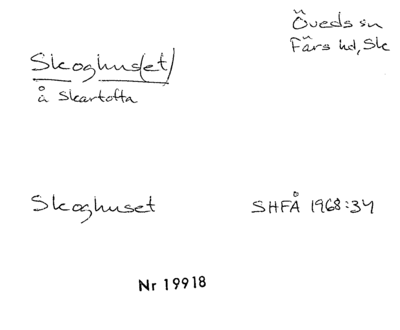 Öveds sn
Färs hd, Sk
Skoghus(et)
å Skartofta
Skoghuset
SHFÅ 1968:34
Nr 19918